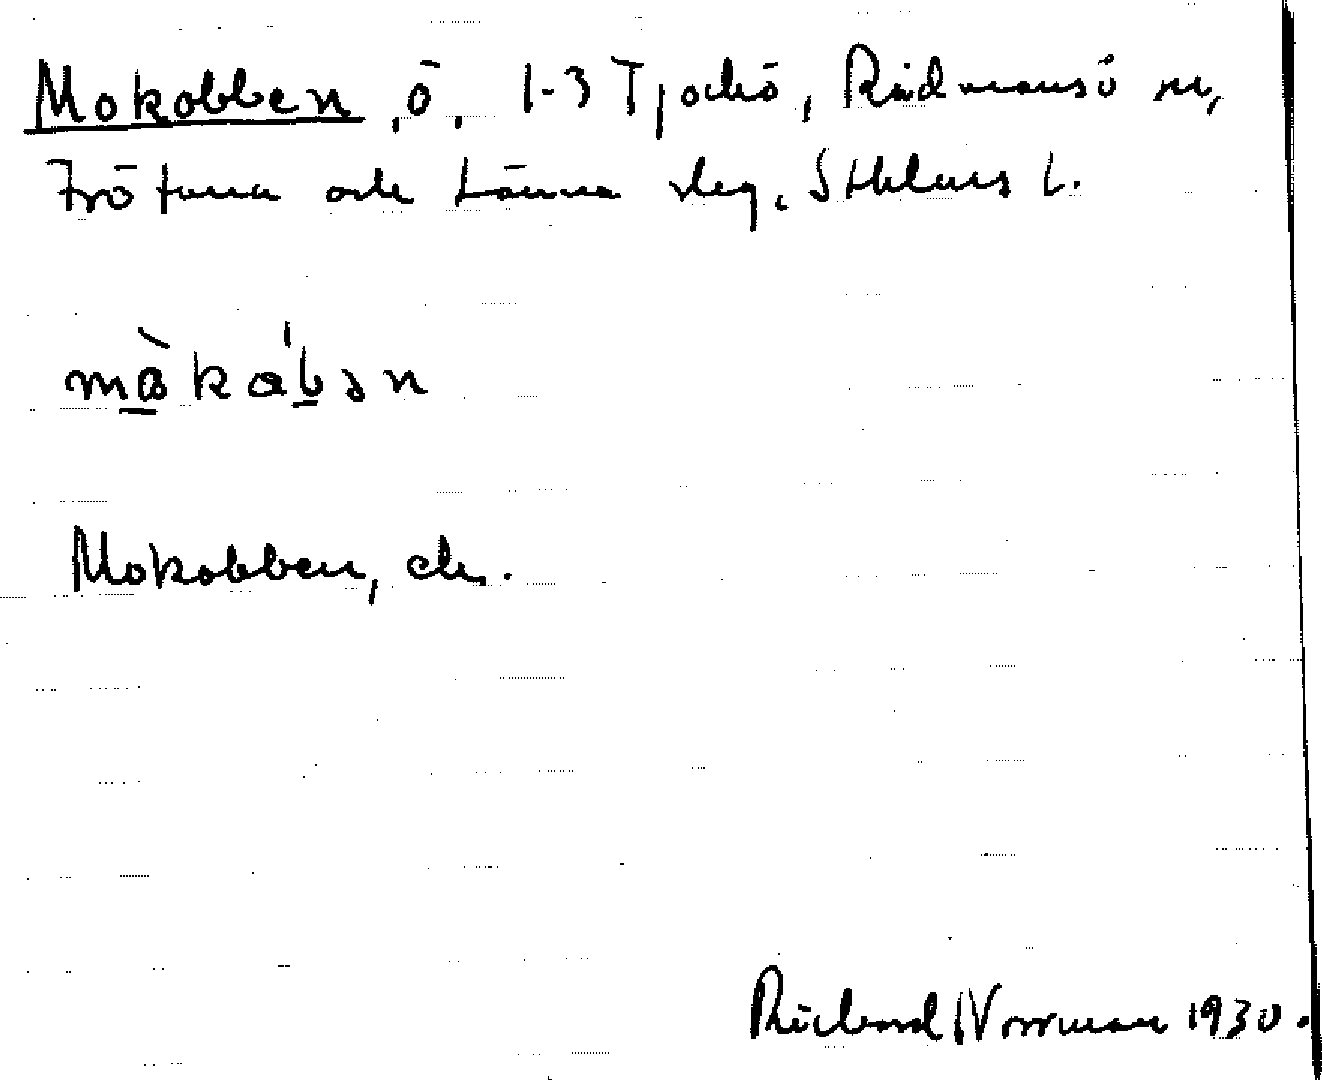 Mokobben, ö, 1-3 Tjockö, Rådmansö sn,
Frötuna och Länna skg. Sthlms l.
mɷ̀káb̲ən
Mokobben, ek.
Rickard Norrman 1930.